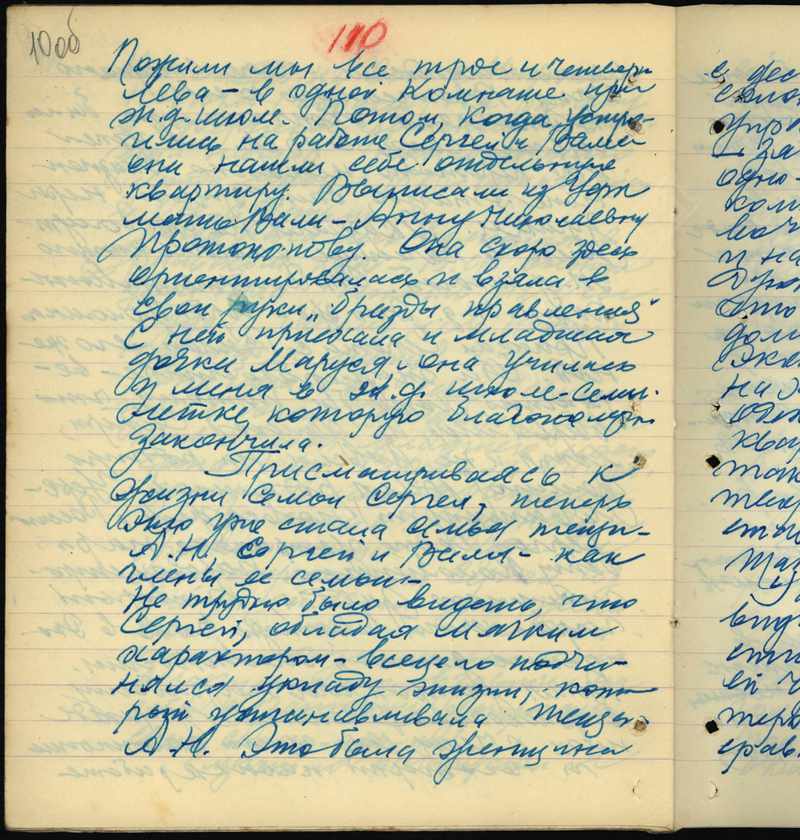 10об
110
Пожили мы все трое и четверо
Лева – в одной комнате при
ж.д. школе. Потом, когда устро-
ились на работе Сергей и Валя
они нашли себе отдельную
квартиру. Выписали из
мать Вали – Анну Николаевну
Протопопову. Она скоро здесь
ориентировалась и взяла в
свои руки „бразды правления"
С ней приехала и младшая
дочка Маруся, она училась
у меня в ж.д. школе-семи-
летке которую благополучно
закончила.
Присматриваясь к
жизни семьи Сергея, теперь
это уже стала семья тещи-
А.Н. Сергей и Валя – как
члены её семьи-
Не трудно было видеть, что
Сергей, обладая мягким
характером – всецело подчи-
нялся укладу жизни, кото-
рый устанавливала теща
А.Н. Это была женщина